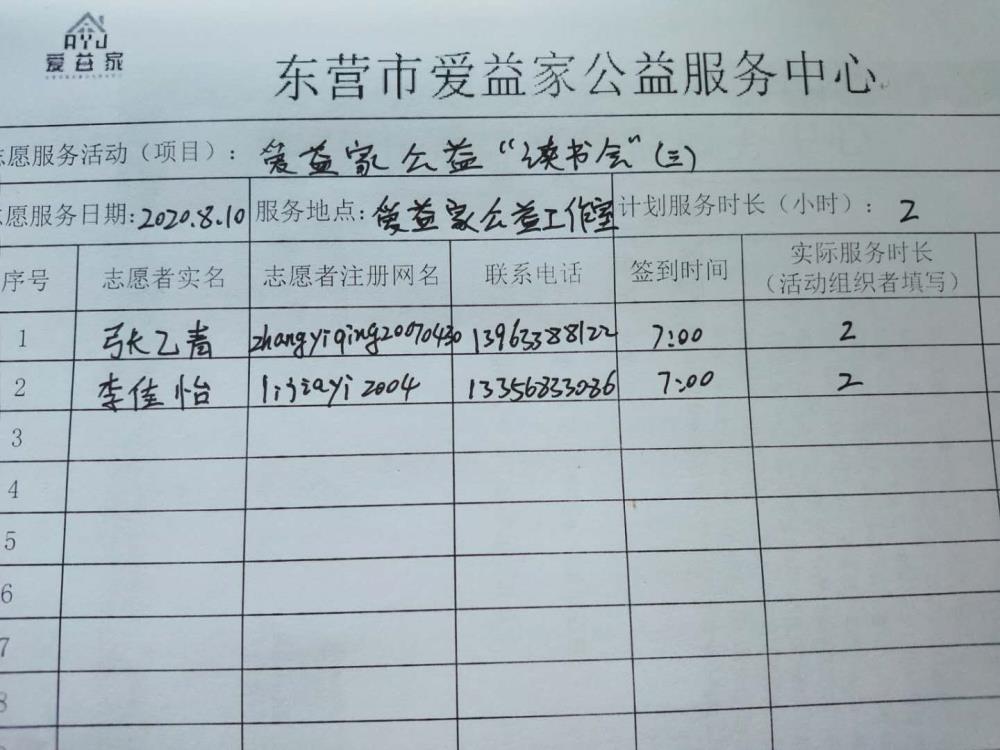 AYJ
爱益家
东营市爱益家公益服务中心
志愿服务活动（项目）：爱益家公益“读书会”（三）
志愿服务日期：2020.8.10 服务地点：爱益家公益工作室 计划服务时长（小时）：2
序号 志愿者实名 志愿者注册网名 联系电话 签到时间 实际服务时长
（活动组织者填写）
1 张乙青 zhangyiqing20070430 13963388122 7:00 2
2 李佳怡 lijiayi2004 13356833086 7:00 2
3
4
5
6
7
8